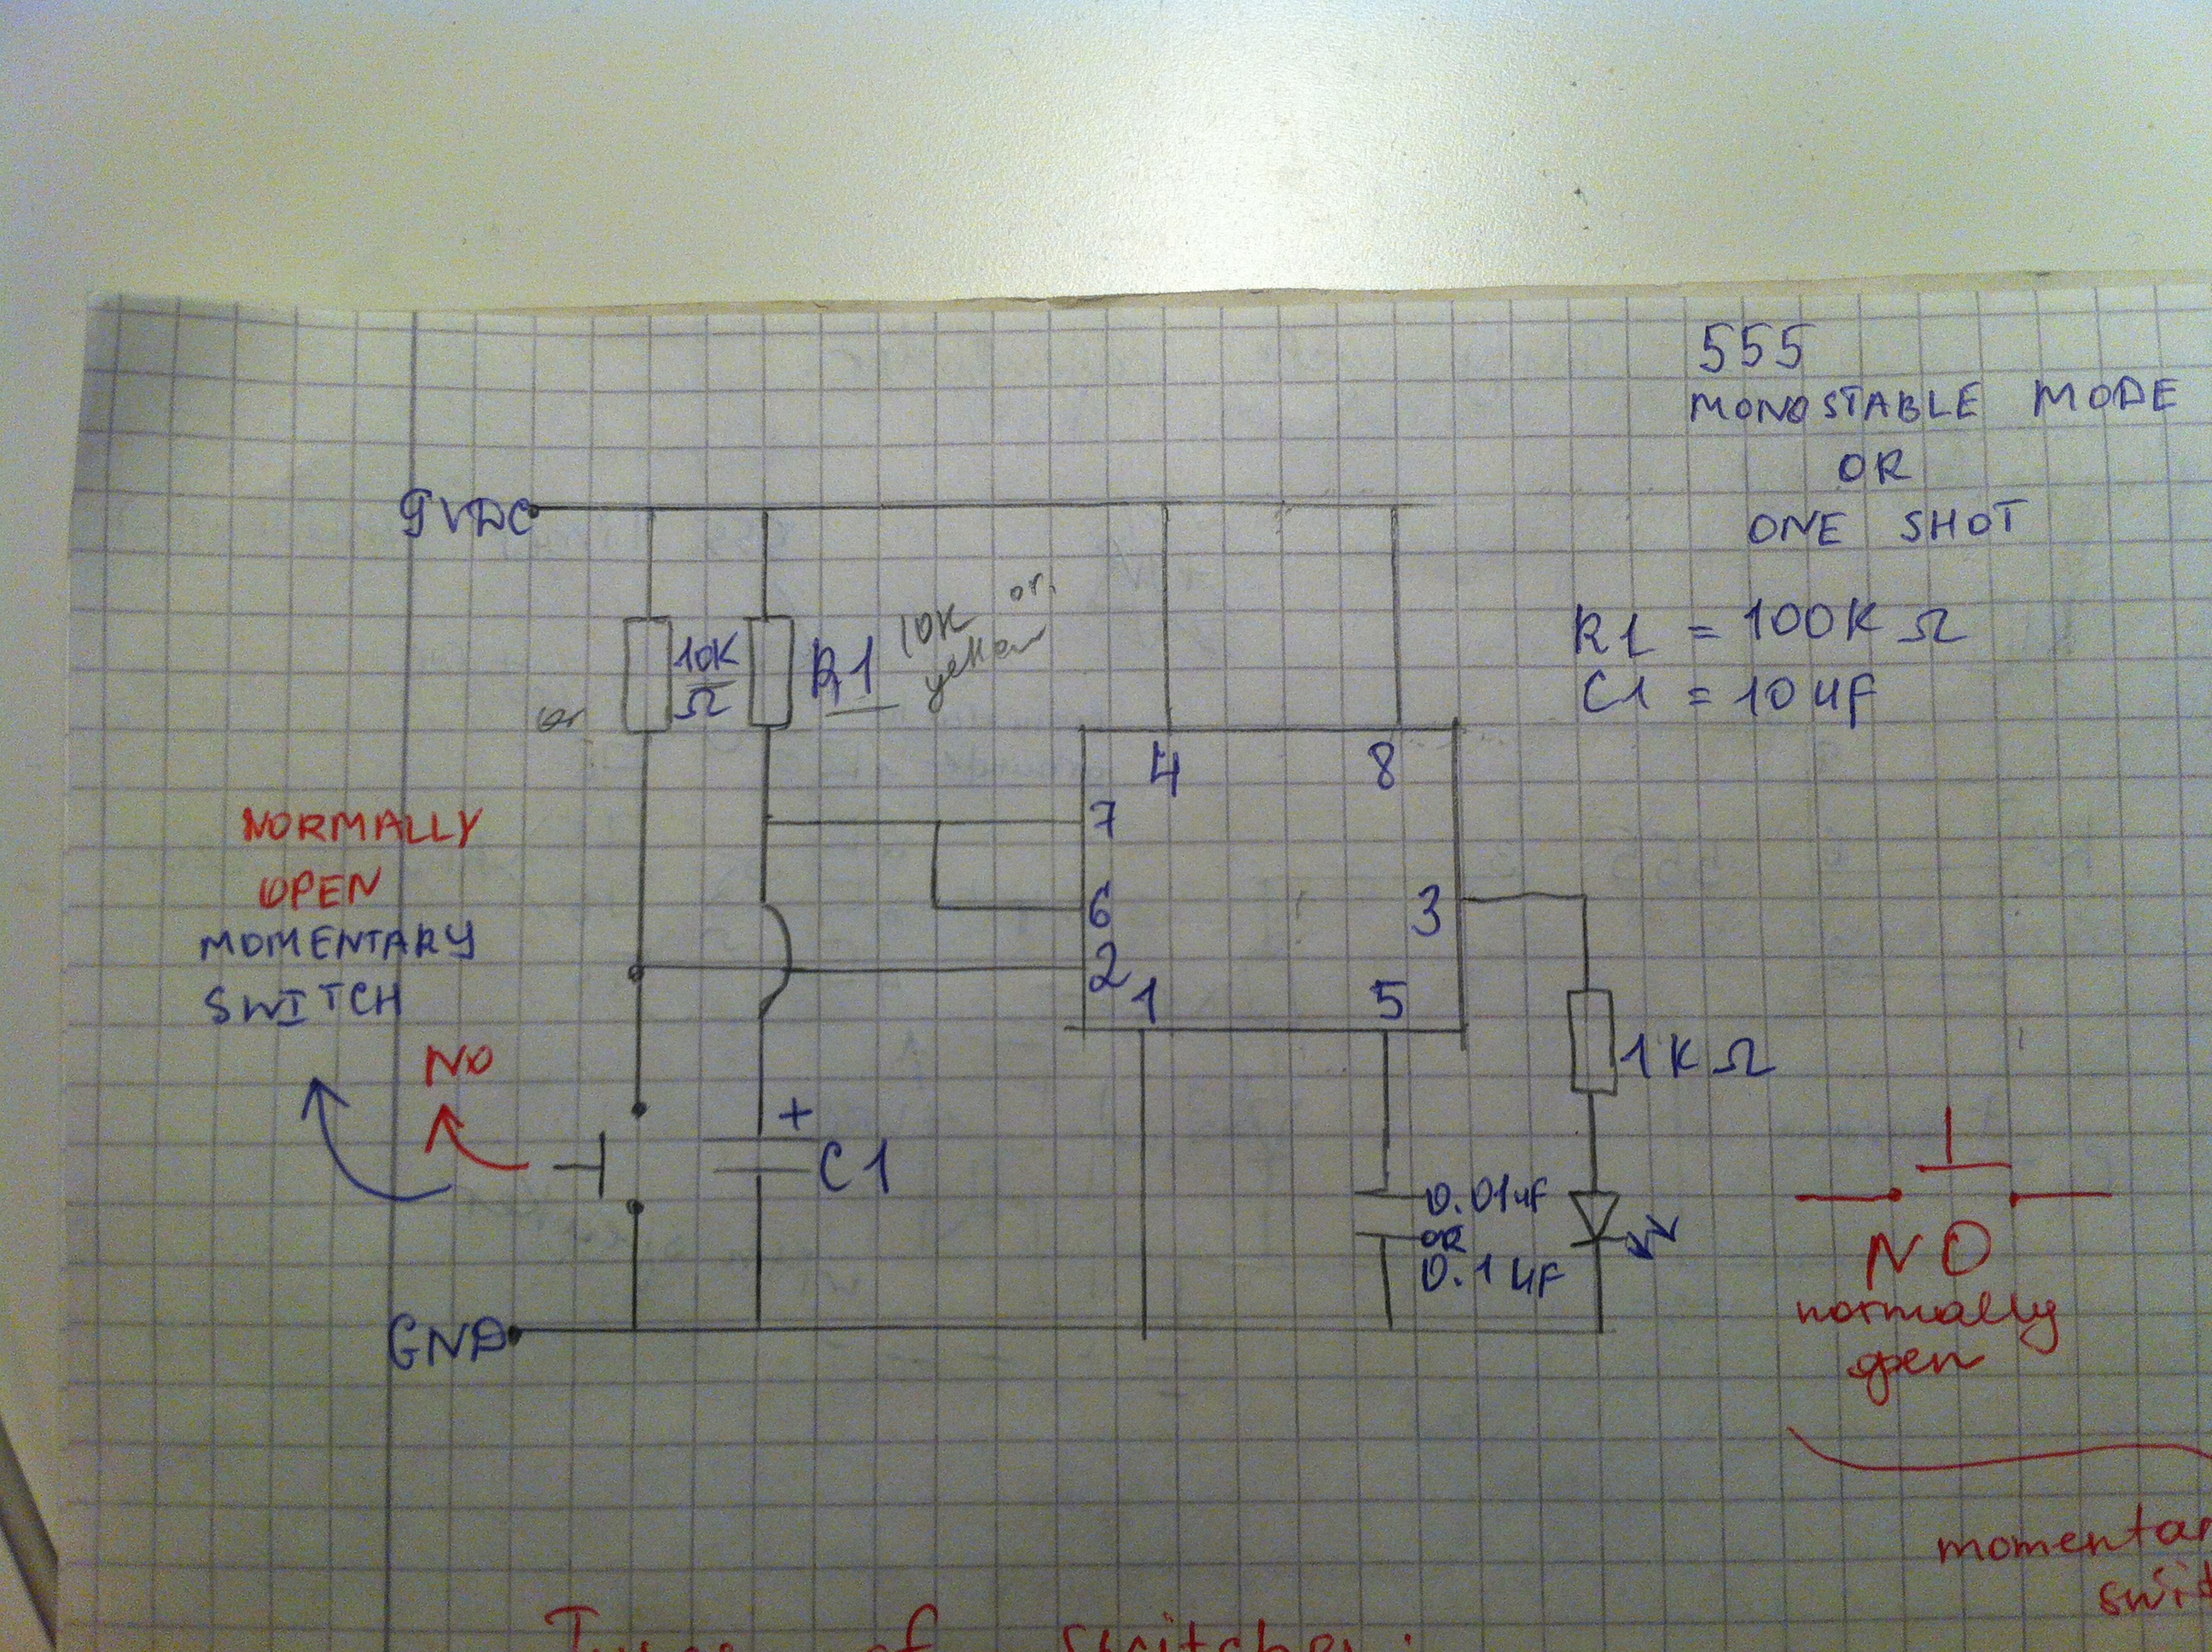 555
MONOSTABLE MODE
OR
ONE SHOT
R1 = 100K Ω
C1 = 10uF
9VDC
10K
Ω
R1
10K or.
yellow
or
4
8
7
6
2
1
5
3
NORMALLY
OPEN
MOMENTARY
SWITCH
NO
+
C1
1KΩ
0.01uF
OR
0.1uF
GND
NO
normally
open
momentar
swit
Types of switches: